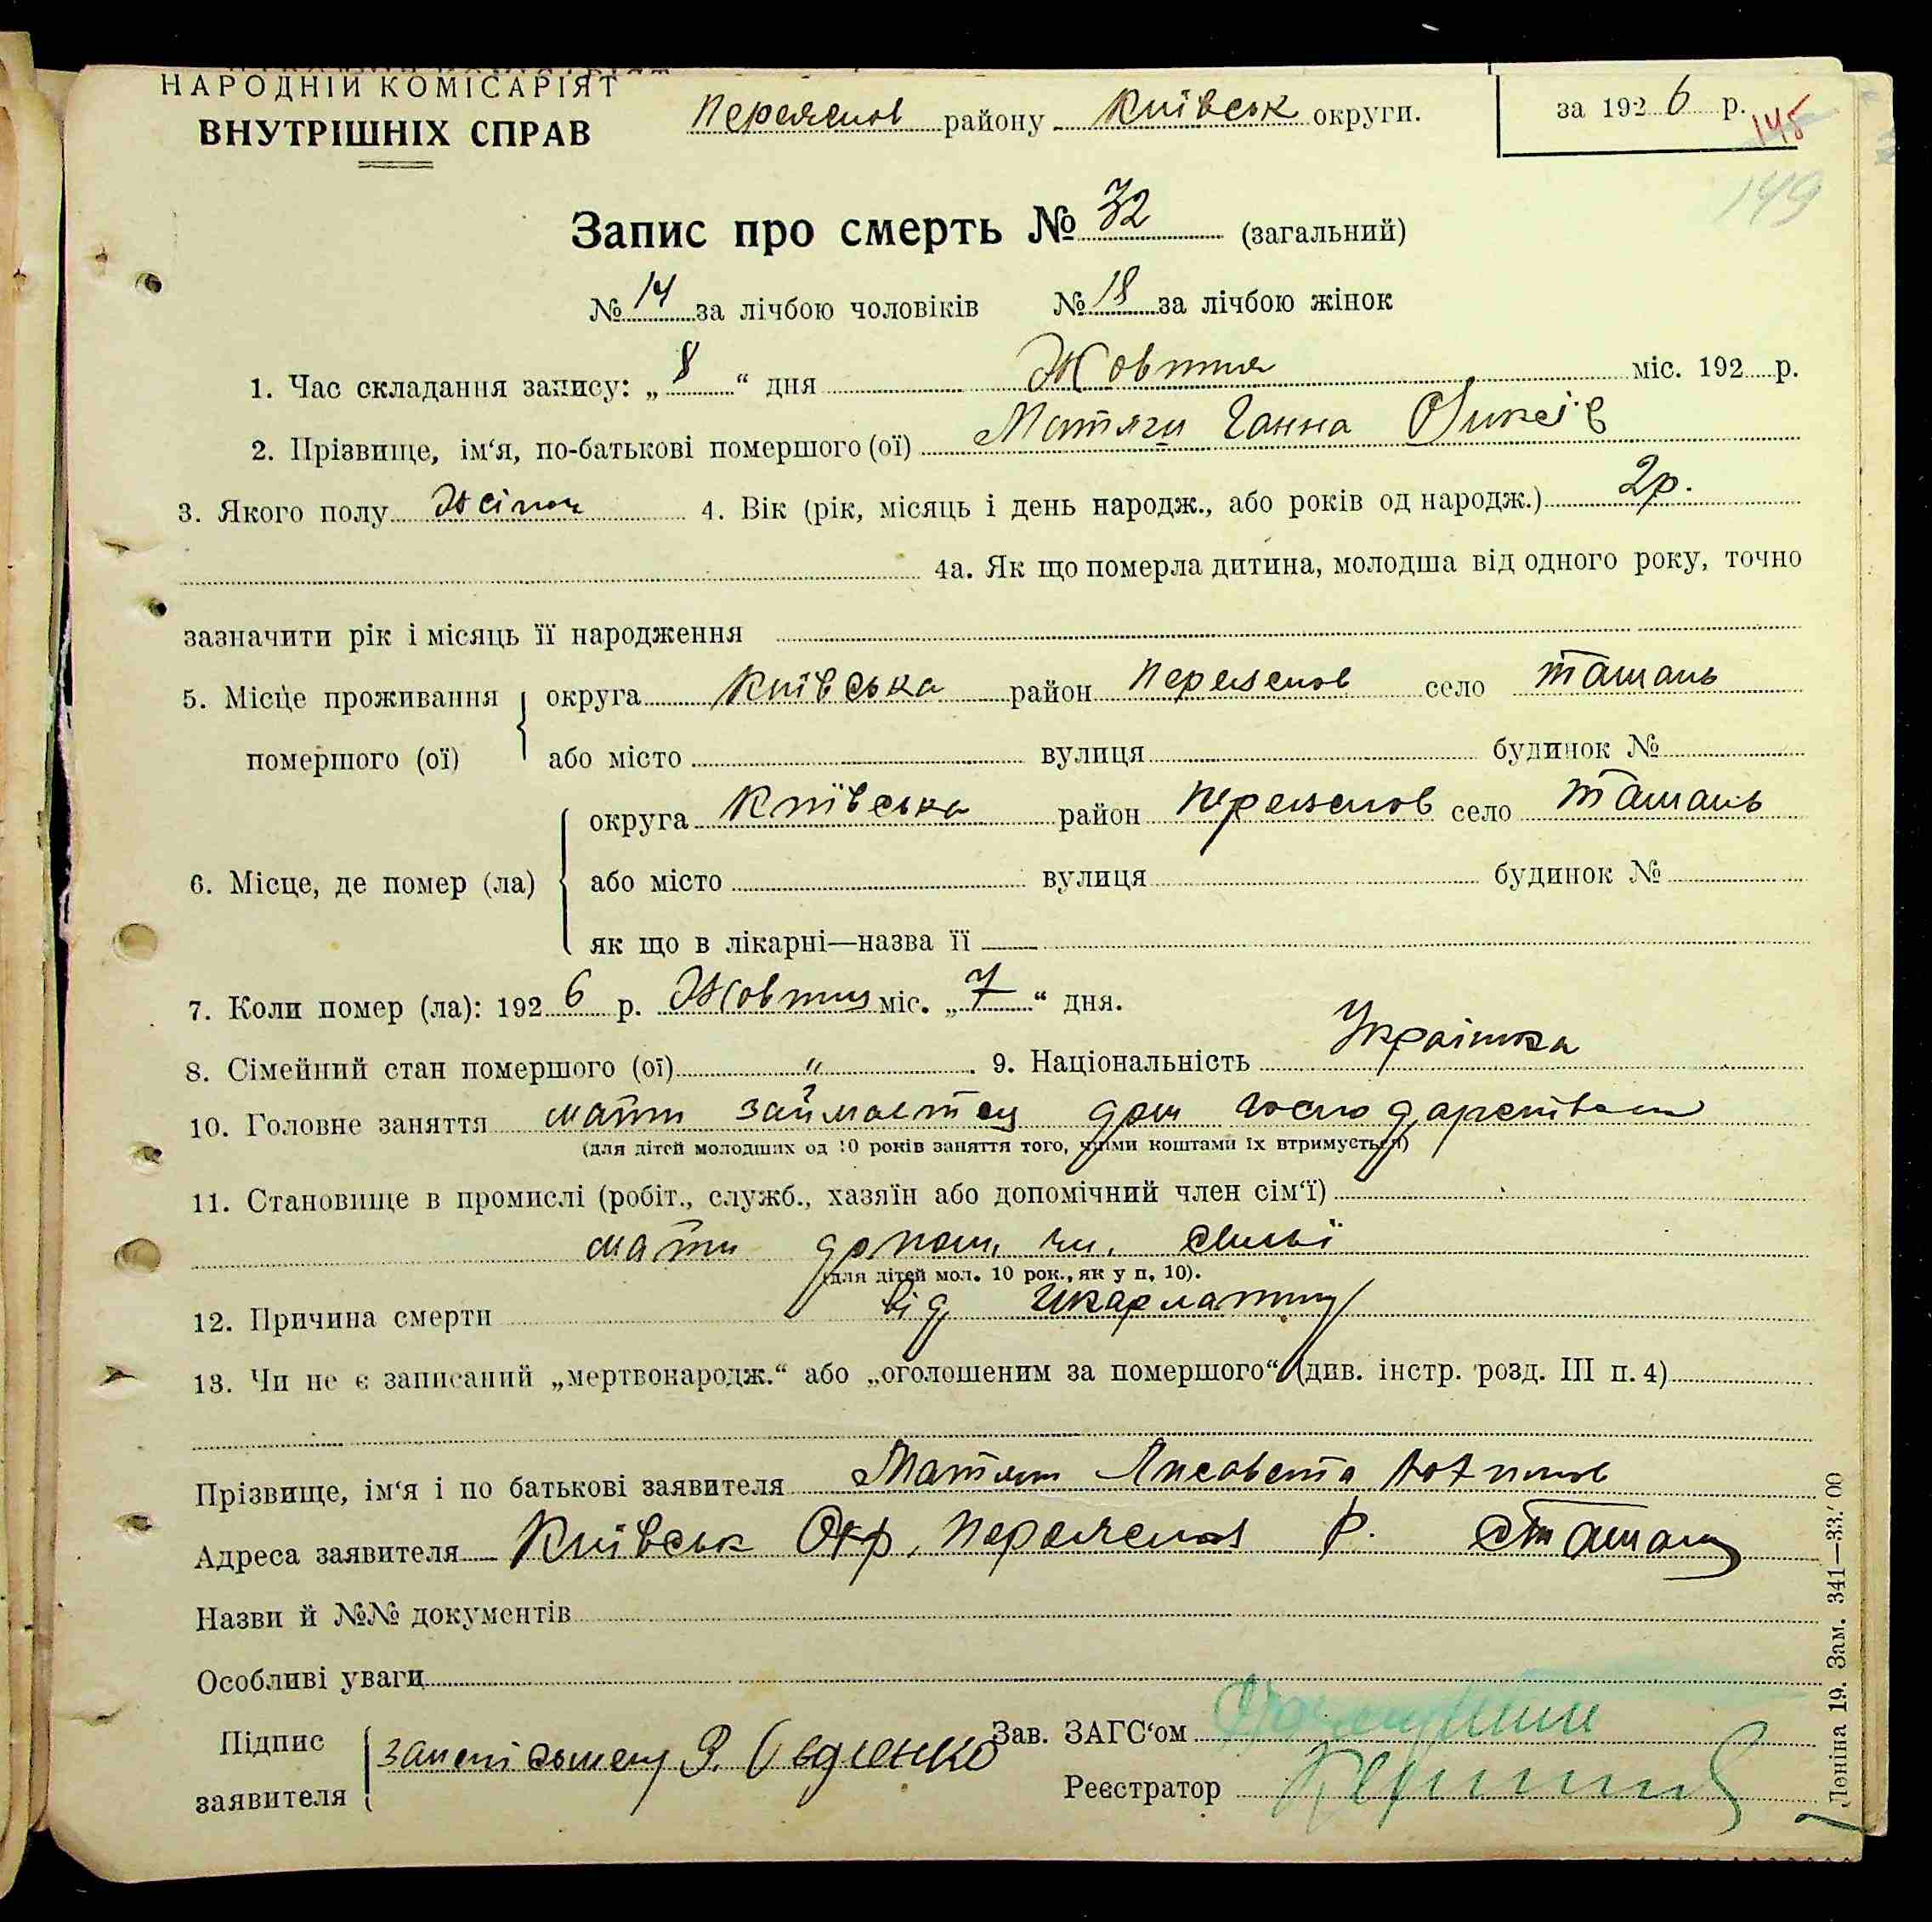 НАРОДНІЙ КОМІСАРІЯТ
ВНУТРІШНІХ СПРАВ
Переяслов району Київськ округи.
за 1926 р.
145
149
Запис про смерть № 32 (загальний)
№ 14 за лічбою чоловіків № 18 за лічбою жінок
1. Час складання запису: „8“ дня Жовтня міс. 192 р.
2. Прізвище, ім‘я, по-батькові помершого (ої) Ганна
3. Якого полу Жіноч 4. Вік (рік, місяць і день народж., або років од народж.) 2р.
4а. Як що померла дитина, молодша від одного року, точно
зазначити рік і місяць її народження
5. Місце проживання округа Київська район Переяслов село Ташань
помершого (ої) або місто вулиця будинок №
округа Київська район Переяслов село Ташань
6. Місце, де помер (ла) або місто вулиця будинок №
як що в лікарні—назва її
7. Коли помер (ла): 1926 р. Жовтня міс. „7“ дня.
8. Сімейний стан помершого (ої) „ 9. Національність Українка
10. Головне заняття мати займаетця дом господарством
(для дітей молодших од 10 років заняття того, чиїми коштами їх втримується)
11. Становище в промислі (робіт., служб., хазяїн або допомічний член сім‘ї)
мати допом. чл. сімьї
(для дітей мол. 10 рок., як у п. 10).
12. Причина смерти від шкарлатини
13. Чи не є записаний „мертвонародж.“ або „оголошеним за помершого“ (див. інстр. розд. III п. 4)
Прізвище, ім‘я і по батькові заявителя Лисавета
Адреса заявителя Київськ Окр. Переяслов р. с Ташань
Назви й №№ документів
Особливі уваги
Підпис
заявителя
Зав. ЗАГС‘ом
Реєстратор
Леніна 19. Зам. 341—33.